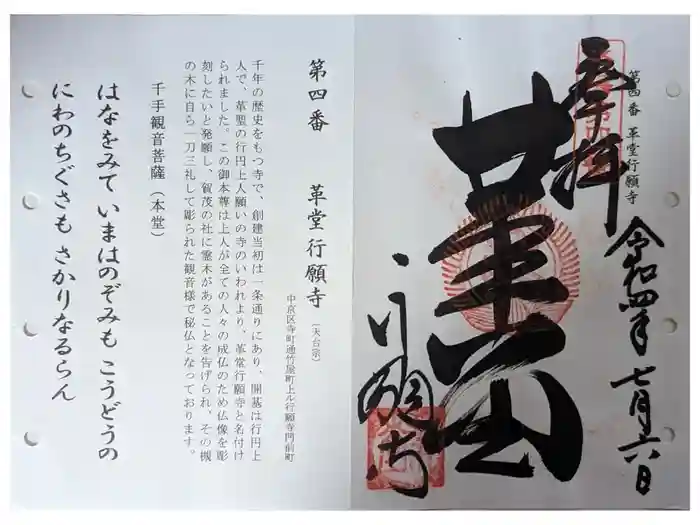 第四番 革堂行願寺
奉拝
令和四年 七月六日
革堂
行願寺
第四番 革堂行願寺 (天台宗)
中京区寺町通竹屋町上ル行願寺門前町
千年の歴史をもつ寺で、創建当初は一条通りにあり、開基は行円上
人で、革聖の行円上人願いの寺のいわれより、革堂行願寺と名付け
られました。この御本尊は上人が全ての人々の成仏のため仏像を彫
刻したいと発願し、賀茂の社に霊木があることを告げられ、その槻
の木に自ら一刀三礼して彫られた観音様で秘仏となっております。
千手観音菩薩(本堂)
はなをみて いまはのぞみも こうどうの
にわのちぐさも さかりなるらん